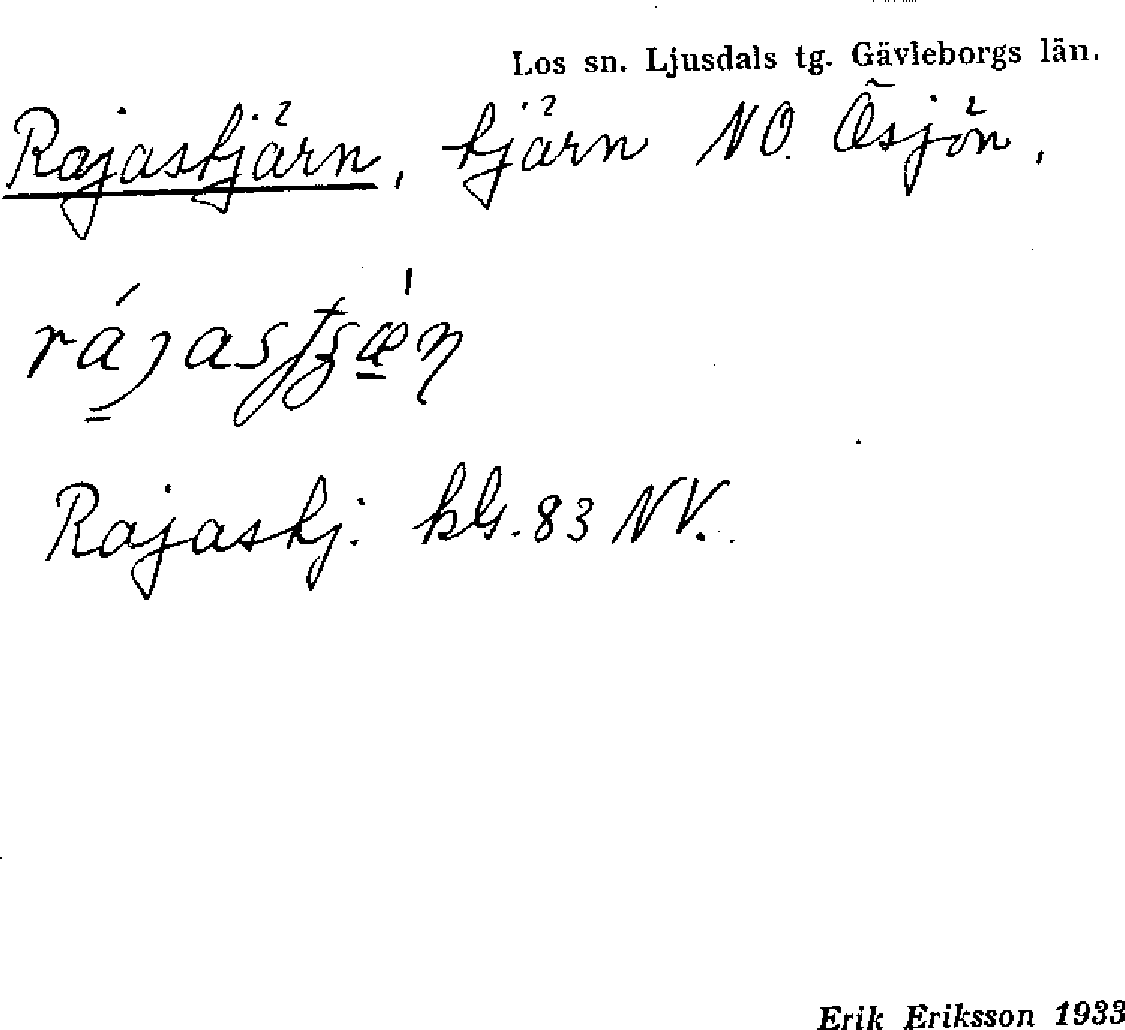 Los sn. Ljusdals tg. Gävleborgs län.
Rajastjärn, tjärn NO. Össjön,
Rajastj. kbl. 83 NV.
Erik Eriksson 1933